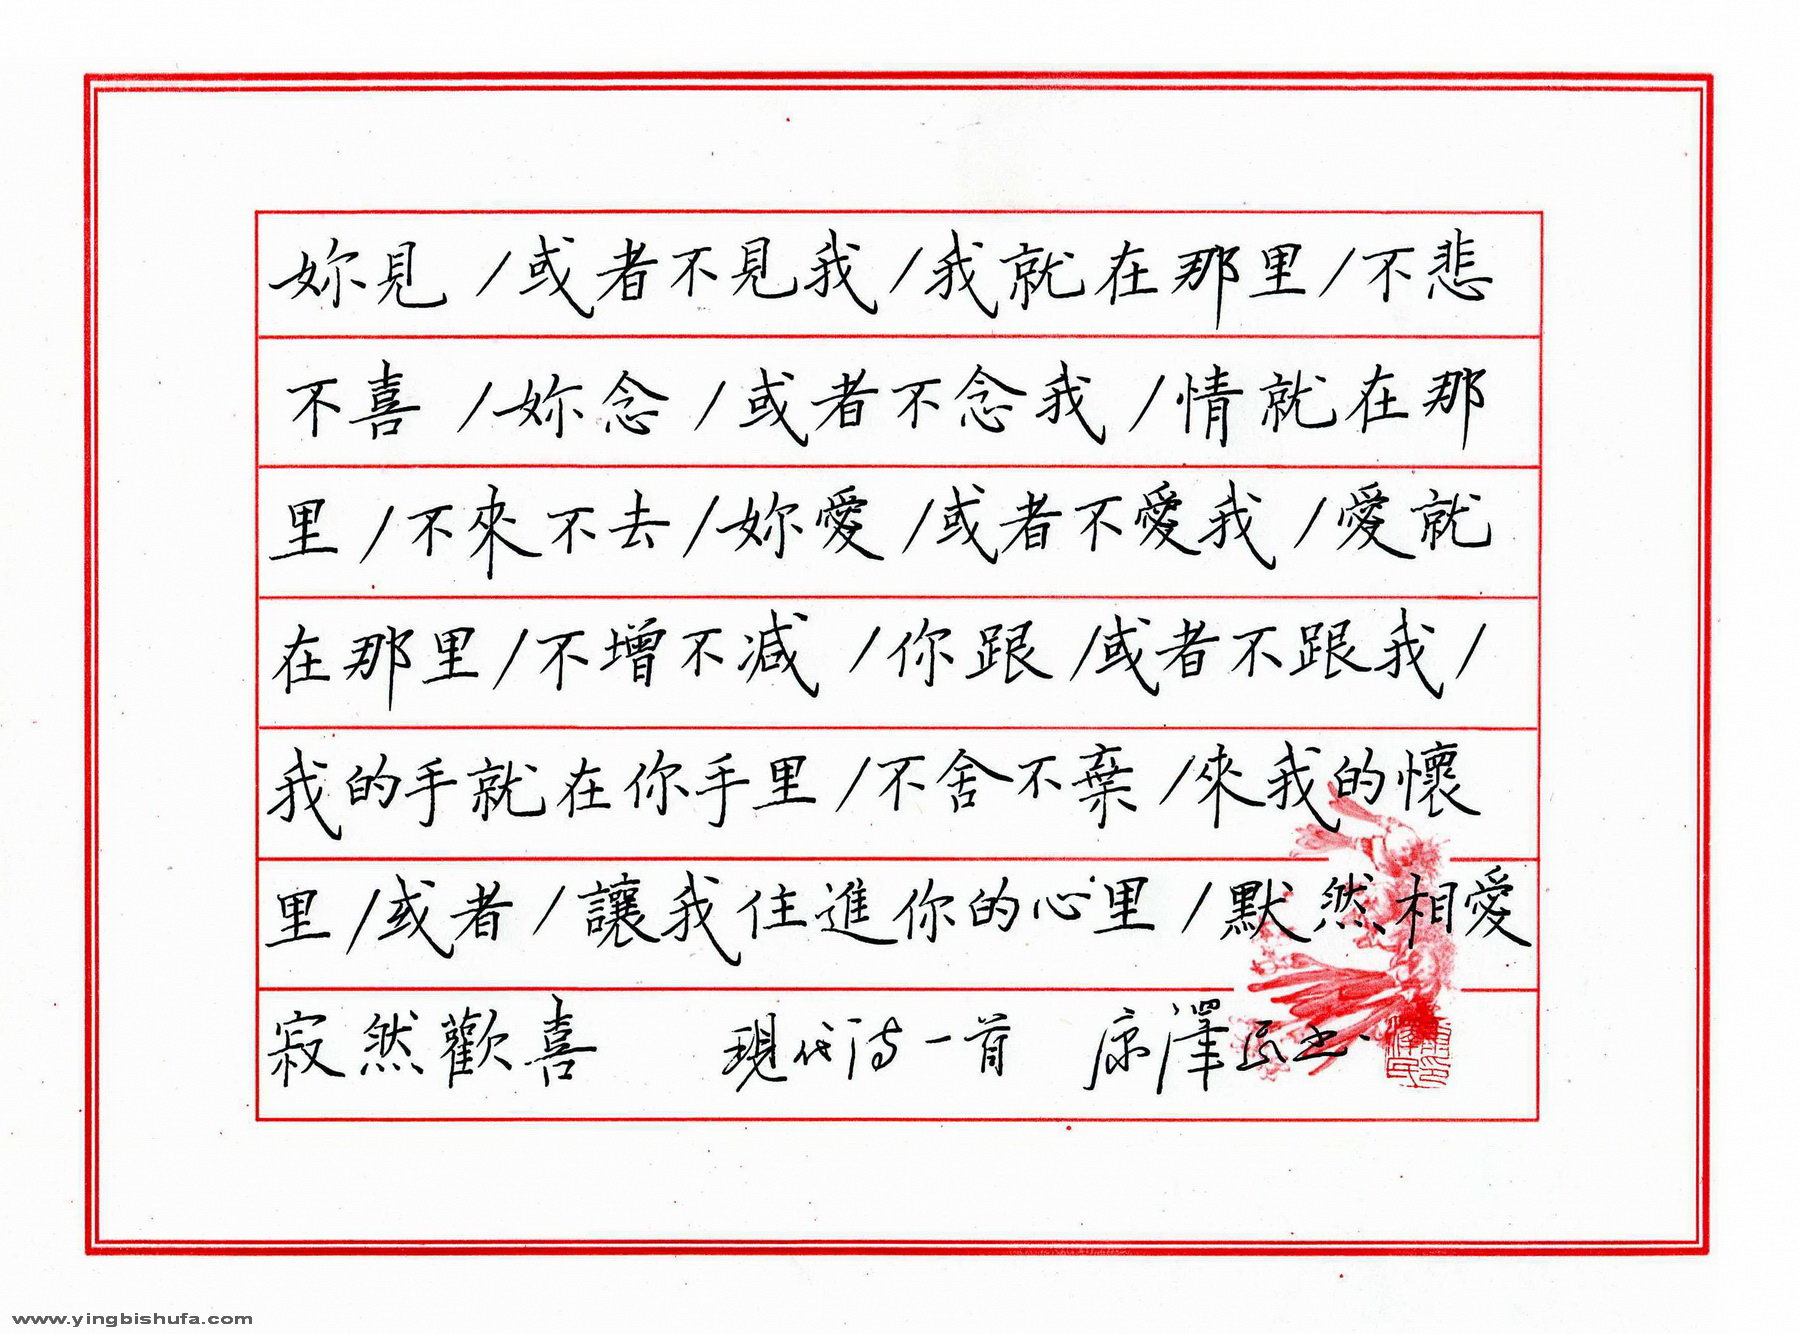 妳見/或者不見我/我就在那里/不悲
不喜/妳念/或者不念我/情就在那
里/不來不去/妳愛/或者不愛我/愛就
在那里/不增不減/你跟/或者不跟我/
我的手就在你手里/不舍不棄/來我的懷
里/或者/讓我住進你的心里/默然相愛
寂然歡喜 現代诗一首 康澤
www.yingbishufa.com